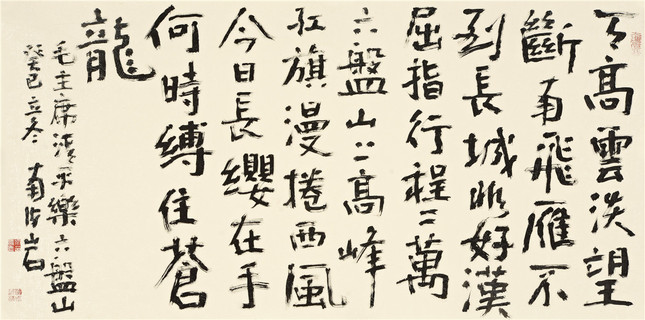 天高雲淡望
斷南飛雁不
到長城非好漢
屈指行程二萬
六盤山上高峰
紅旗漫捲西風
今日長纓在手
何時縛住蒼
龍
毛主席清平樂六盤山
癸巳立冬